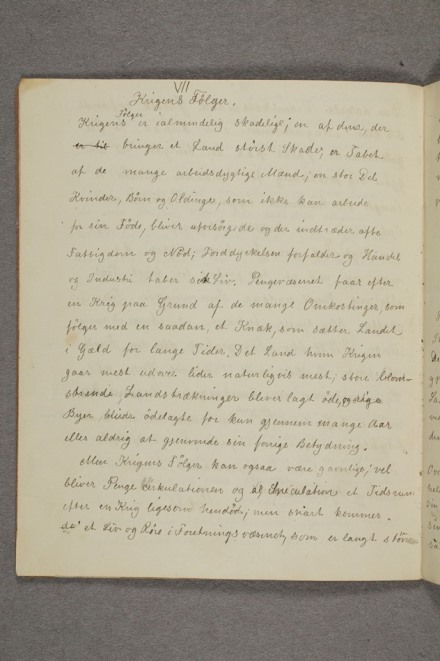 VII
Krigens Følger.
Følger
Krigens er i almindelig skadelige; en af dem, der
bringer et Land størst Skade, er Tabet
af de mange arbeidsdygtige Mænd; en stor Del
Kvinder, Børn og Oldinge, som ikke kan arbeide
for sin Føde, bliver uforsørgede og der indtræder ofte
Fattigdom og Nød; Jorddyrkelsen forfalder og Handel
og Industri taber sit Liv. Pengevæsenet faar efter
en Krig paa Grund af de mange Omkostinger, som
følger med en saadan, et Knæk, som sætter Landet
i Gæld for lange Tider. Det Land hvor Krigen
gaar mest udover lider naturligvis mest; store blom-
strende Landstrækninger bliver lagt øde, og rige
Byer blive ødelagte for kun gjennem mange Aar
eller aldrig at gjenvinde sin forrige Betydning.
Men Krigens Følger kan ogsaa være gavnlige; vel
bliver Penge cirkulationen og et Tidsrum
efter en Krig ligesom hendød; men snart kommer
et Liv og Røre i Foretningsvæsenet, som er langt større